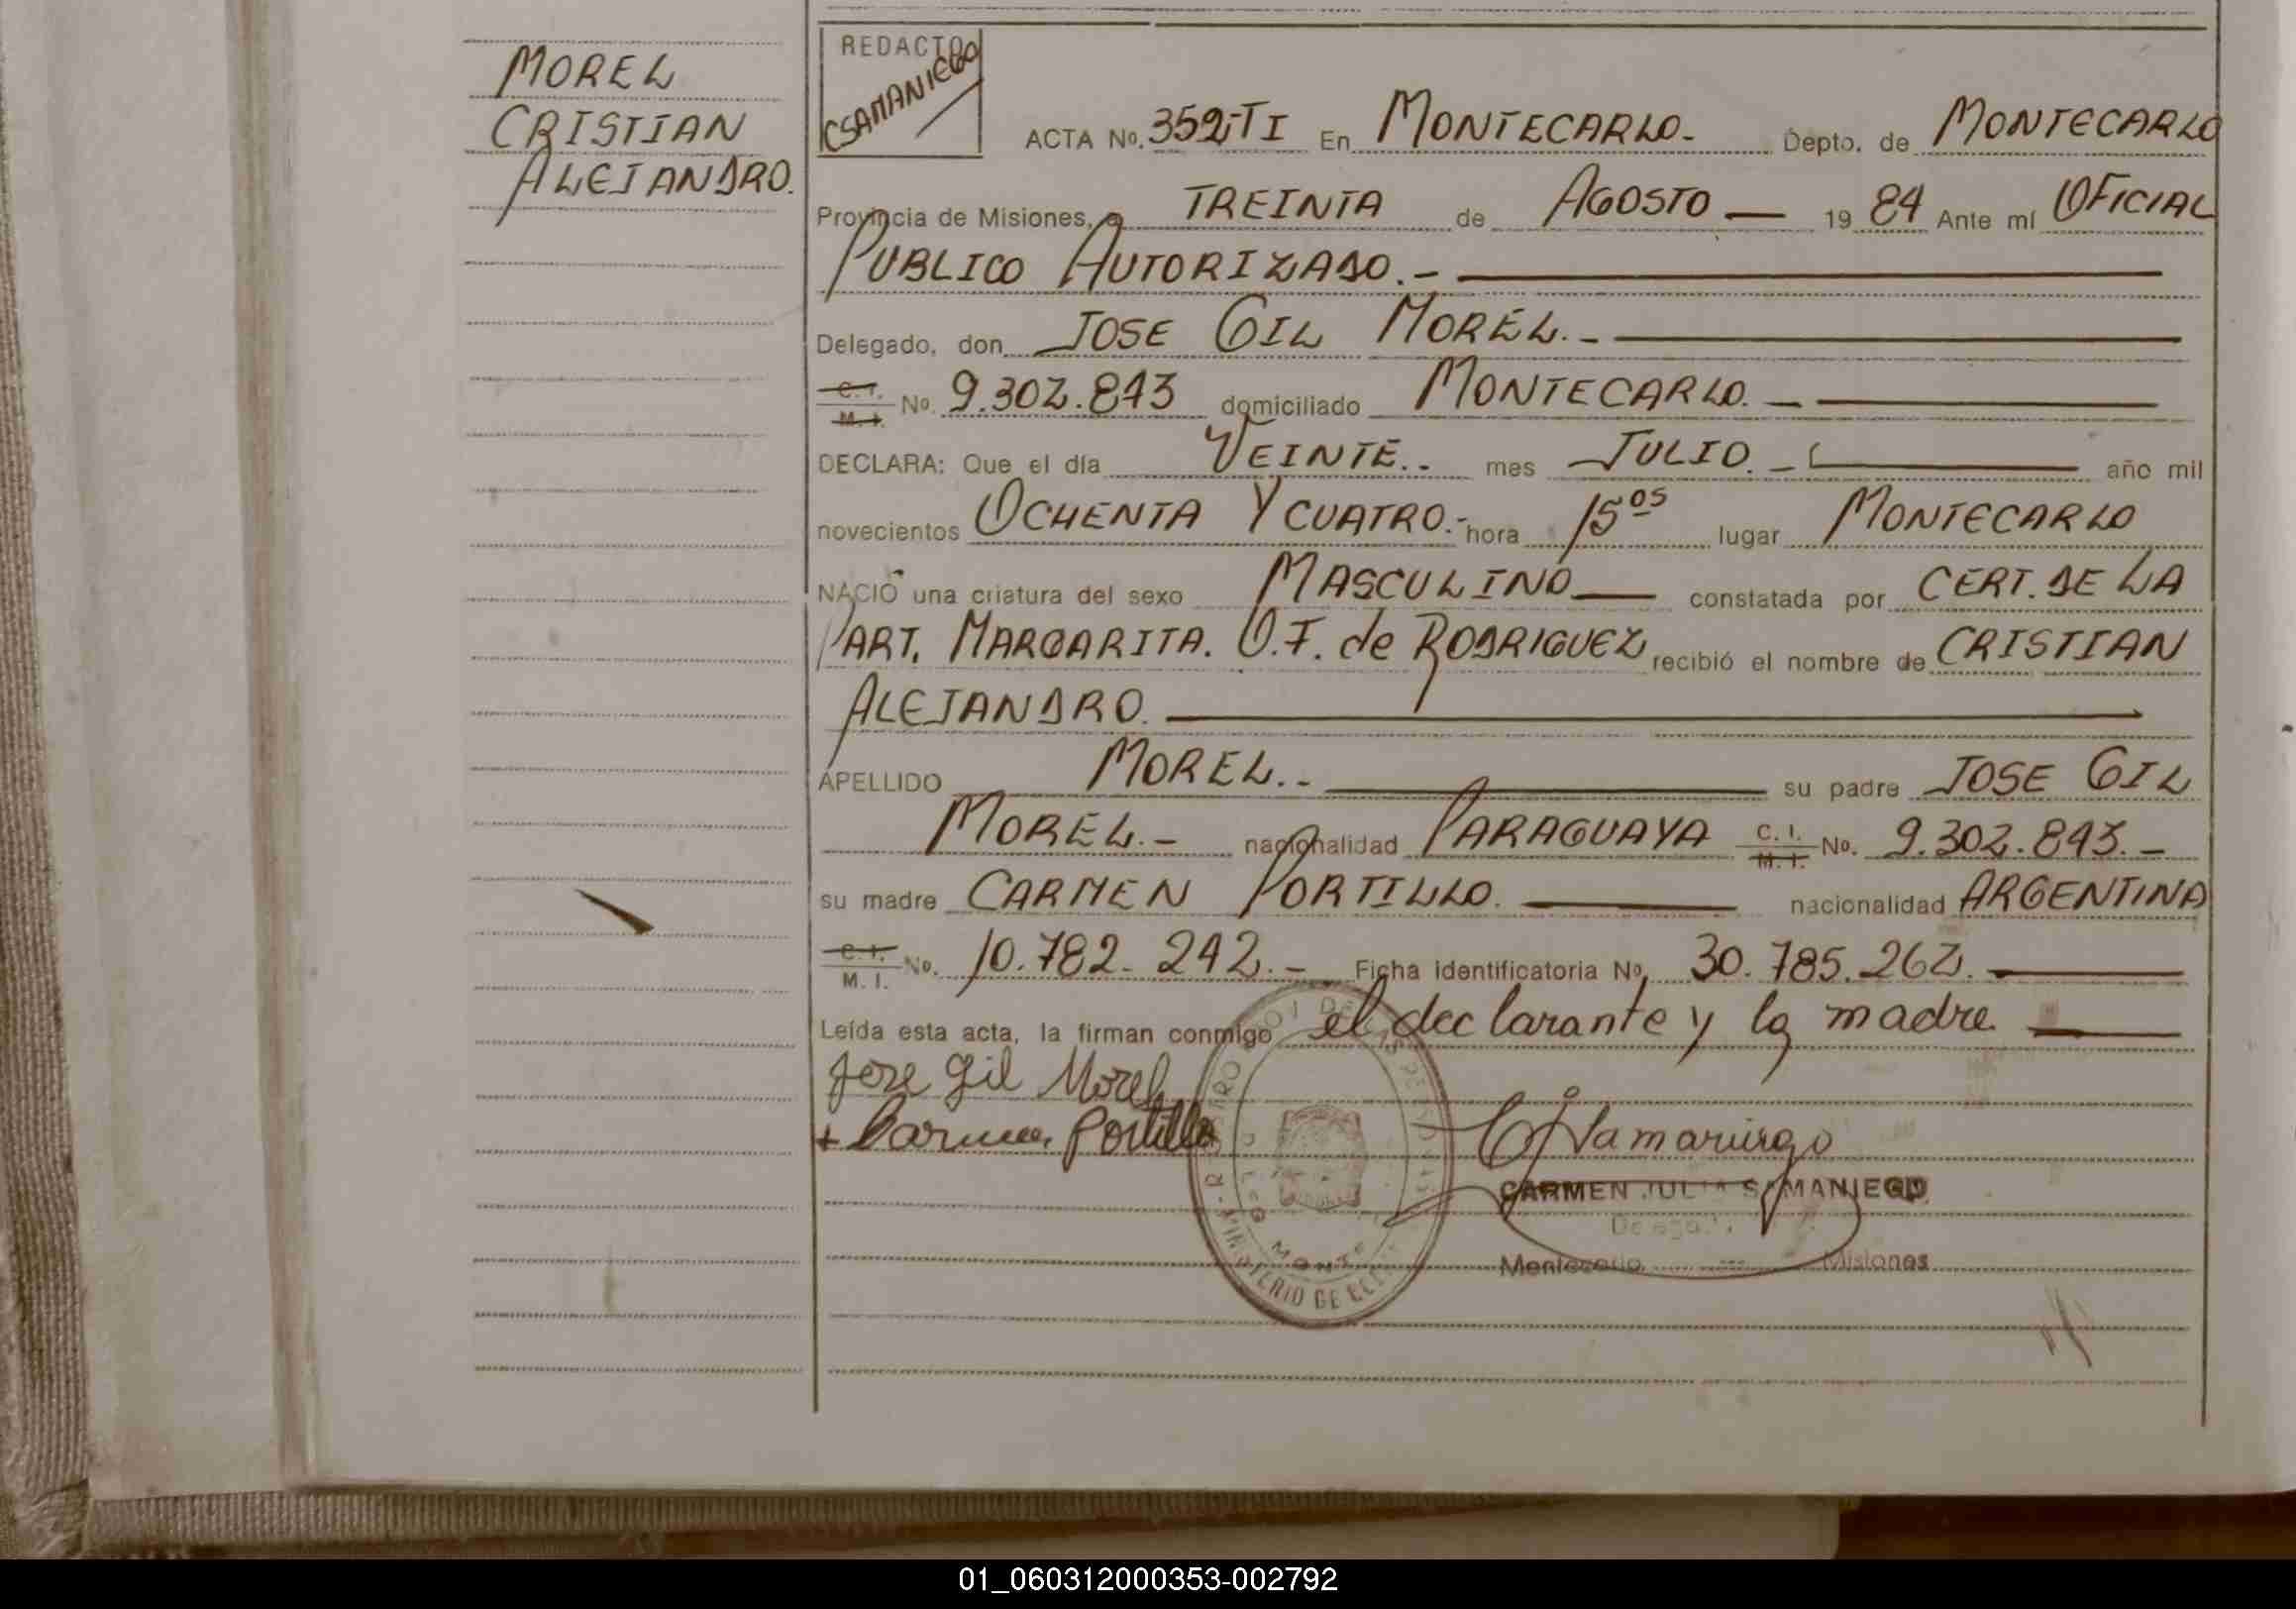 MOREL
CRISTIAN
ALEJANDRO.
REDACTO
CSAMANIEGO
ACTA No. 352 TI En MONTECARLO.- Depto. de MONTECARLO
Provincia de Misiones, a TREINTA de AGOSTO — 19 84 Ante mí OFICIAL
PUBLICO AUTORIZADO.-
Delegado, don JOSE GIL MOREL.-
C. I. M. I. No. 9.302.843 domiciliado MONTECARLO.-
DECLARA: Que el día VEINTE.. mes JULIO.- año mil
novecientos OCHENTA Y CUATRO.- hora 15 05 lugar MONTECARLO
NACIÓ una criatura del sexo MASCULINO — constatada por CERT. DE LA
PART. MARGARITA. O.F. de RODRIGUEZ recibió el nombre de CRISTIAN
ALEJANDRO.
APELLIDO MOREL.- su padre JOSE GIL
MOREL.- nacionalidad PARAGUAYA C. I. M. I. No. 9.302.843.-
su madre CARMEN PORTILLO. nacionalidad ARGENTINA
C. I. M. I. No. 10.782.242.- Ficha identificatoria No. 30.785.262.
Leída esta acta, la firman conmigo el declarante y la madre.
Jose Gil Morel
+ Carmen Portillo
CSamaniego
CARMEN JULIA SAMANIEGO
Delegada
Montecarlo Misiones
MINISTERIO DE
01_060312000353-002792